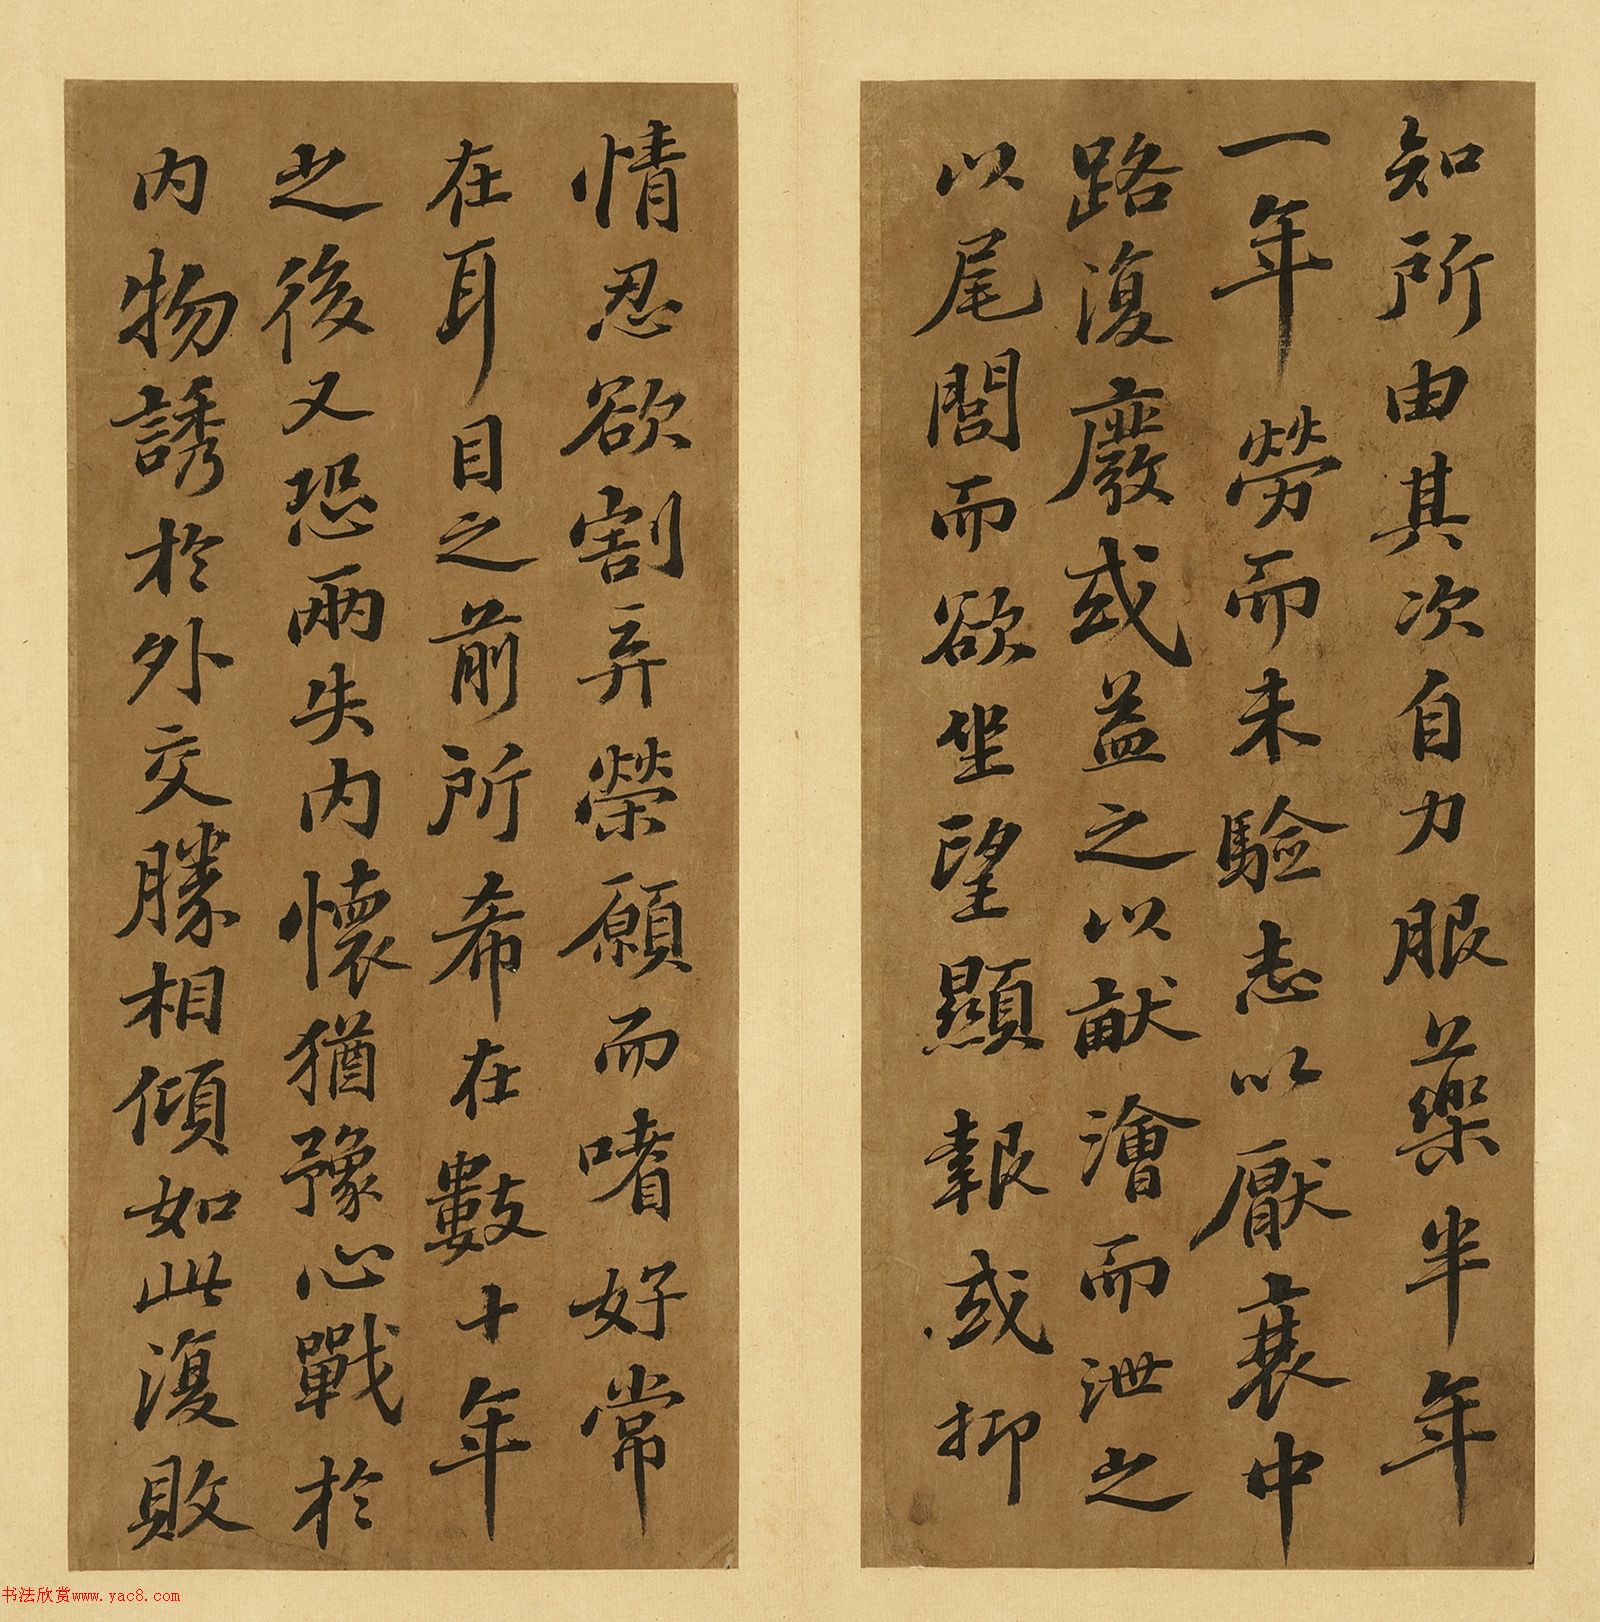 知所由其次自力服藥半年
一年勞而未驗志以厭衰中
路復廢或益之以畎澮而泄之
以尾閭而欲坐望顯報或抑
情忍欲割棄榮願而嗜好常
在耳目之前所希在數十年
之後又恐兩失內懷猶豫心戰於
內物誘於外交勝相傾如此復敗
书法欣赏www.yac8.com